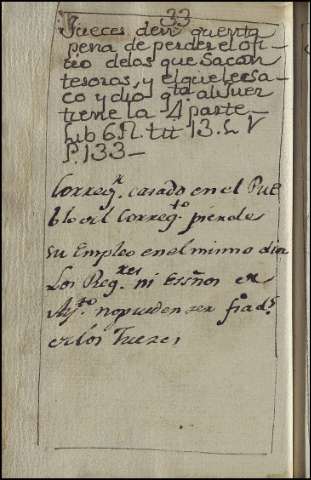 33
Jueces den quenta
pena de perder el ofi-
cio de los que Sacan
tesoros, y el que le sa-
có y dio qta. al Juez
tiene la 4 parte
Lib 6 R. tit 13. L V
P. 133
Correg.r casado en el Pue
blo del Correg.to pierde
su Empleo en el mismo dia
Los Reg.res ni Essños de
Ay.to no pueden ser fiad.s
de los Jueces